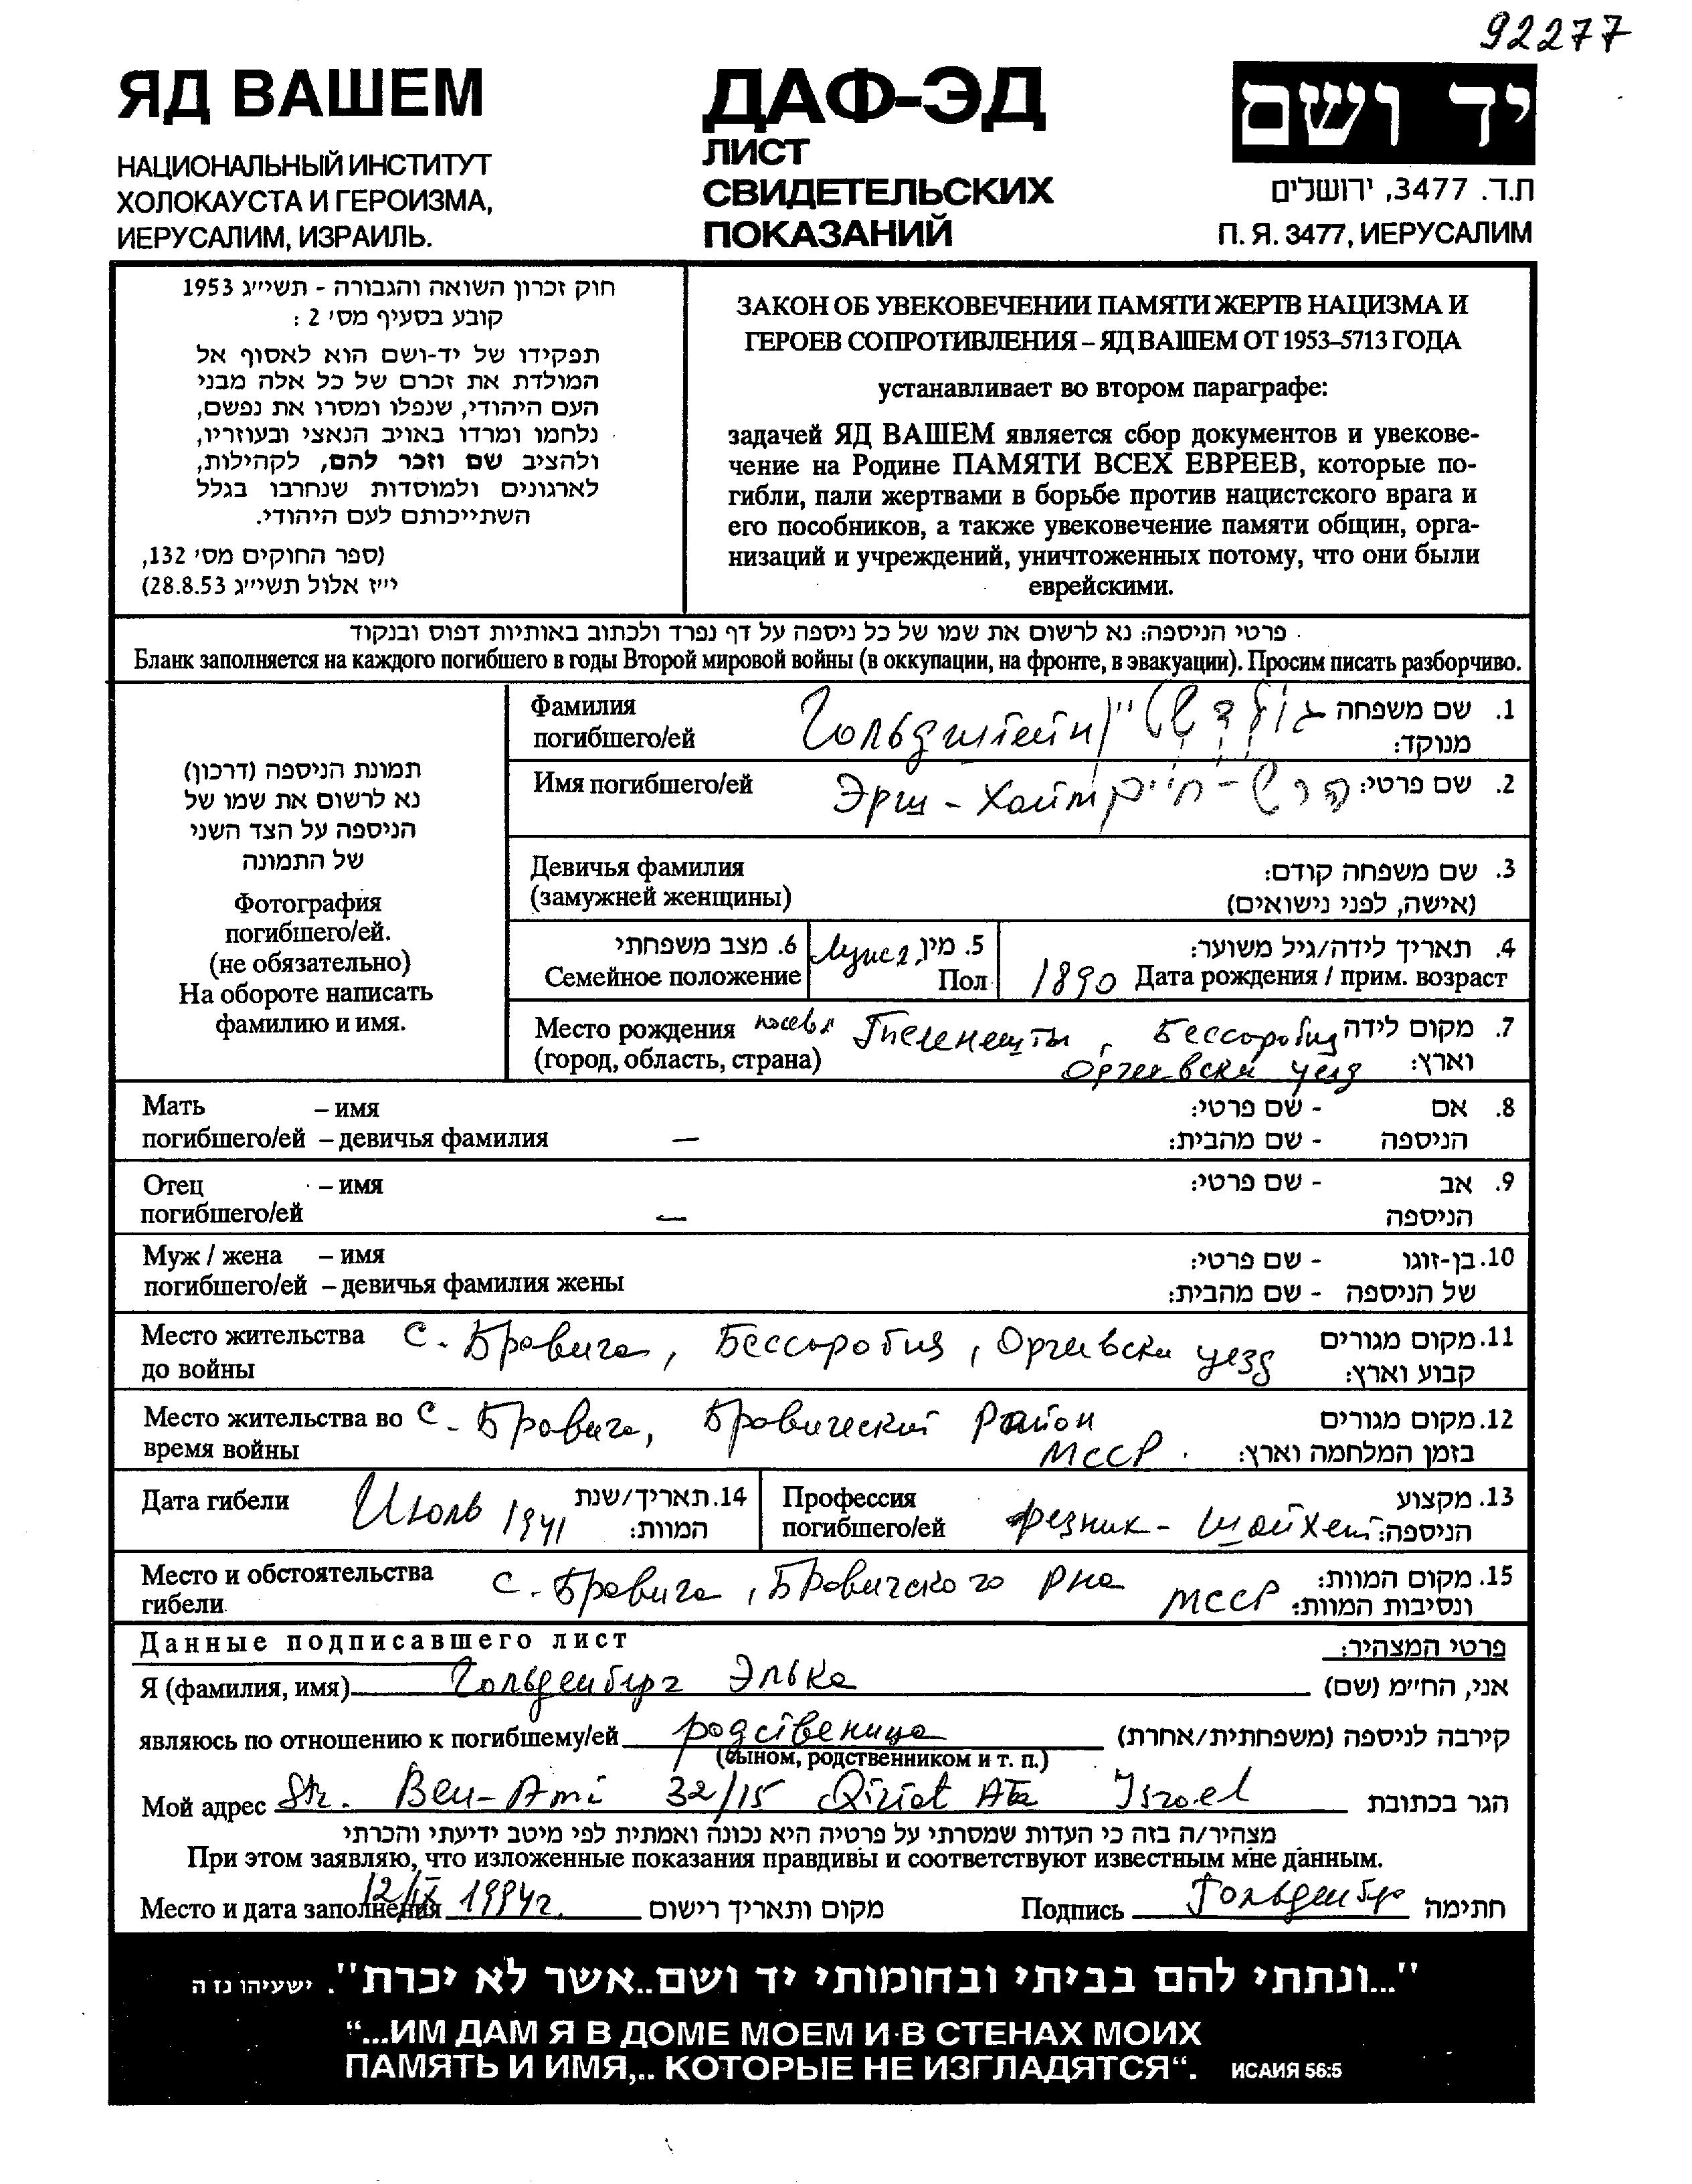 92277
ЯД ВАШЕМ
НАЦИОНАЛЬНЫЙ ИНСТИТУТ
ХОЛОКАУСТА И ГЕРОИЗМА,
ИЕРУСАЛИМ, ИЗРАИЛЬ.
ДАФ-ЭД
ЛИСТ
СВИДЕТЕЛЬСКИХ
ПОКАЗАНИЙ
יד ושם
ת.ד. 3477, ירושלים
П. Я. 3477, ИЕРУСАЛИМ
חוק זכרון השואה והגבורה - תשי״ג 1953
קובע בסעיף מס׳ 2 :
תפקידו של יד-ושם הוא לאסוף אל
המולדת את זכרם של כל אלה מבני
העם היהודי, שנפלו ומסרו את נפשם,
נלחמו ומרדו באויב הנאצי ובעוזריו,
ולהציב שם וזכר להם, לקהילות,
לארגונים ולמוסדות שנחרבו בגלל
השתייכותם לעם היהודי.
(ספר החוקים מס׳ 132,
י״ז אלול תשי״ג 28.8.53)
ЗАКОН ОБ УВЕКОВЕЧЕНИИ ПАМЯТИ ЖЕРТВ НАЦИЗМА И
ГЕРОЕВ СОПРОТИВЛЕНИЯ – ЯД ВАШЕМ ОТ 1953–5713 ГОДА
устанавливает во втором параграфе:
задачей ЯД ВАШЕМ является сбор документов и увекове-
чение на Родине ПАМЯТИ ВСЕХ ЕВРЕЕВ, которые по-
гибли, пали жертвами в борьбе против нацистского врага и
его пособников, а также увековечение памяти общин, орга-
низаций и учреждений, уничтоженных потому, что они были
еврейскими.
פרטי הניספה: נא לרשום את שמו של כל ניספה על דף נפרד ולכתוב באותיות דפוס ובנקוד
Бланк заполняется на каждого погибшего в годы Второй мировой войны (в оккупации, на фронте, в эвакуации). Просим писать разборчиво.
תמונת הניספה (דרכון)
נא לרשום את שמו של
הניספה על הצד השני
של התמונה
Фотография
погибшего/ей.
(не обязательно)
На обороте написать
фамилию и имя.
Фамилия Гольдштейн גולדשטיין 1. שם משפחה
погибшего/ей מנוקד:
Имя погибшего/ей Эрш - Хаим הרש - חיים 2. שם פרטי:
Девичья фамилия 3. שם משפחה קודם:
(замужней женщины) (אישה, לפני נישואים)
6. מצב משפחתי 5. מין 4. תאריך לידה/גיל משוער:
Семейное положение Пол 1890 Дата рождения / прим. возраст
Место рождения Теленешты, Бессаробия 7. מקום לידה
(город, область, страна) Оргеевски уезд וארץ:
Мать – имя - שם פרטי: 8. אם
погибшего/ей – девичья фамилия — - שם מהבית: הניספה
Отец – имя - שם פרטי: 9. אב
погибшего/ей — הניספה
Муж / жена – имя - שם פרטי: 10. בן-זוגו
погибшего/ей – девичья фамилия жены - שם מהבית: של הניספה
Место жительства с. Бровича, Бессаробия, Оргеевски уезд 11. מקום מגורים
до войны קבוע וארץ:
Место жительства во с. Бровича, Бровический район 12. מקום מגורים
время войны МССР. בזמן המלחמה וארץ:
Дата гибели Июль 1941 14. תאריך/שנת המוות:
Профессия резник - шойхет 13. מקצוע
погибшего/ей הניספה:
Место и обстоятельства с. Бровича, Бровичского р-на МССР 15. מקום המוות:
гибели ונסיבות המוות:
Данные подписавшего лист פרטי המצהיר:
Я (фамилия, имя) Гольденберг Элька אני, החי״מ (שם)
являюсь по отношению к погибшему/ей родственица קירבה לניספה (משפחתית/אחרת)
(сыном, родственником и т. п.)
Мой адрес Str. Ben-Ami 32/15 Qiriat Ata Israel הגר בכתובת
מצהיר/ה בזה כי העדות שמסרתי על פרטיה היא נכונה ואמתית לפי מיטב ידיעתי והכרתי
При этом заявляю, что изложенные показания правдивы и соответствуют известным мне данным.
Место и дата заполнения 12/IX 1994г. מקום ותאריך רישום Подпись Гольденбер חתימה
"...ונתתי להם בביתי ובחומותי יד ושם..אשר לא יכרת". ישעיהו נז ה
“...ИМ ДАМ Я В ДОМЕ МОЕМ И В СТЕНАХ МОИХ
ПАМЯТЬ И ИМЯ,.. КОТОРЫЕ НЕ ИЗГЛАДЯТСЯ“. ИСАИЯ 56:5